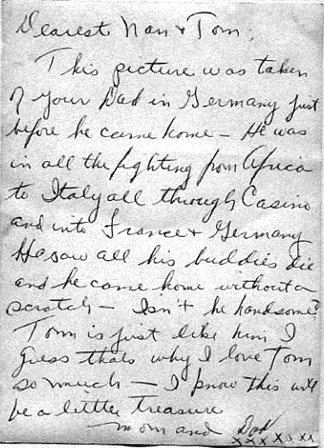 Dearest Nan & Tom,
This picture was taken
of your Dad in Germany just
before he came home – He was
in all the fighting from Africa
to Italy all through Casino
and into France & Germany
He saw all his buddies die
and he came home without a
scratch – Isn't he handsome?
Tom is just like him I
guess thats why I love Tom
so much – I know this will
be a little treasure
Mom and Dad
xxxxxx